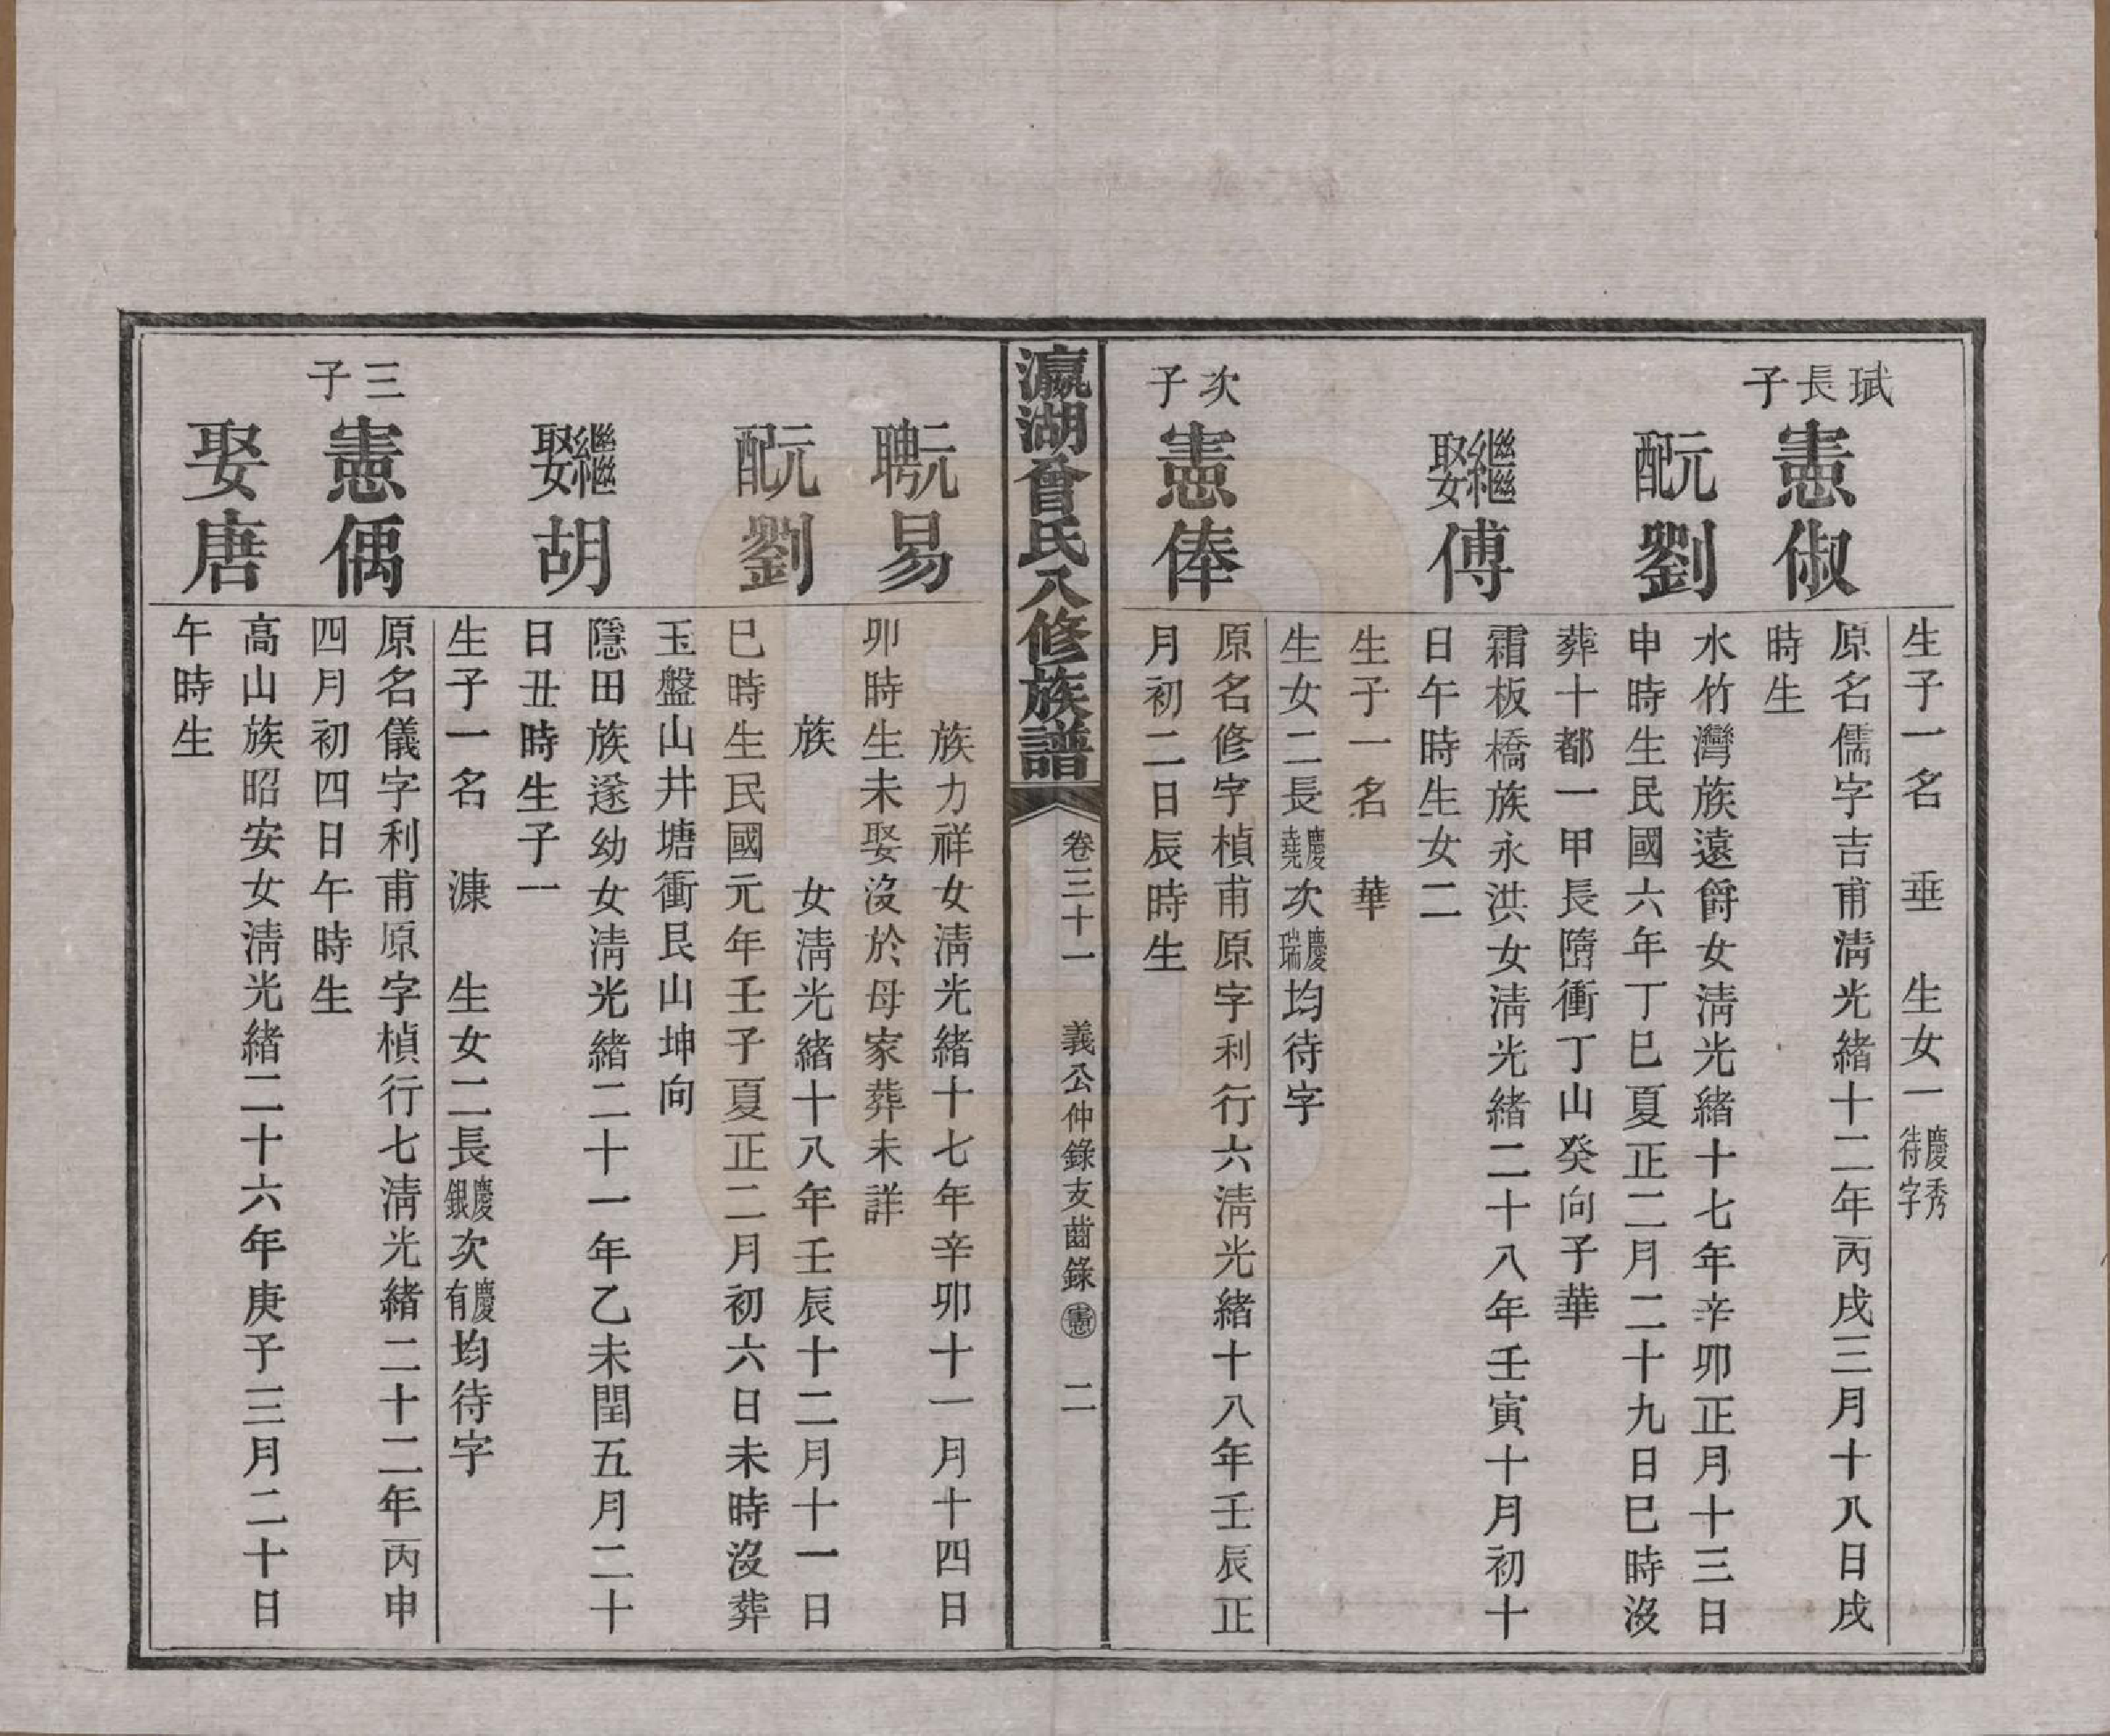 生子一名　垂　生女一慶秀待字
斌長子
憲俶
原名儒字吉甫淸光緒十二年丙戌三月十八日戌
時生
元配劉
水竹灣族遠爵女淸光緒十七年辛卯正月十三日
申時生民國六年丁巳夏正二月二十九日巳時沒
葬十都一甲長隋衝丁山癸向子華
繼娶傅
霜板橋族永洪女淸光緒二十八年壬寅十月初十
日午時生女二
生子一名　華
生女二長慶堯次慶瑞均待字
次子
憲俸
原名修字楨甫原字利行六淸光緒十八年壬辰正
月初二日辰時生
瀛湖曾氏八修族譜
卷三十一　義公仲錄支齒錄　憲　二
元聘易
族力祥女淸光緒十七年辛卯十一月十四日
卯時生未娶沒於母家葬未詳
元配劉
族　女淸光緒十八年壬辰十二月十一日
巳時生民國元年壬子夏正二月初六日未時沒葬
玉盤山井塘衝艮山坤向
繼娶胡
隱田族遂幼女淸光緒二十一年乙未閏五月二十
日丑時生子一
生子一名　漮　生女二長慶銀次慶有均待字
三子
憲偊
原名儀字利甫原字楨行七淸光緒二十二年丙申
四月初四日午時生
娶唐
高山族昭安女淸光緒二十六年庚子三月二十日
午時生